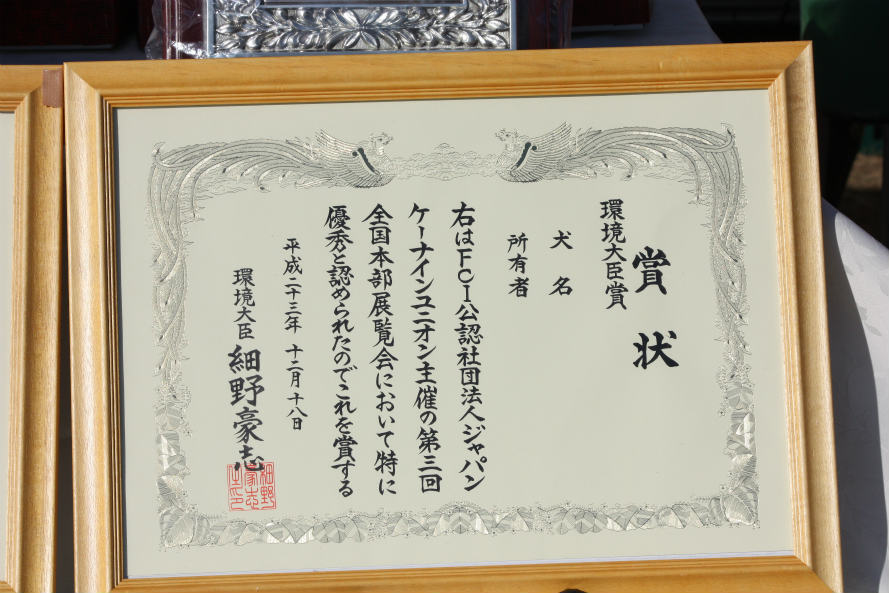 賞状
環境大臣賞
犬名
所有者
右はFCI公認社団法人ジャパン
ケーナインユニオン主催の第三回
全国本部展覧会において特に
優秀と認められたのでこれを賞する
平成二十三年 十二月 十八日
環境大臣 細野豪志
細野豪志之印